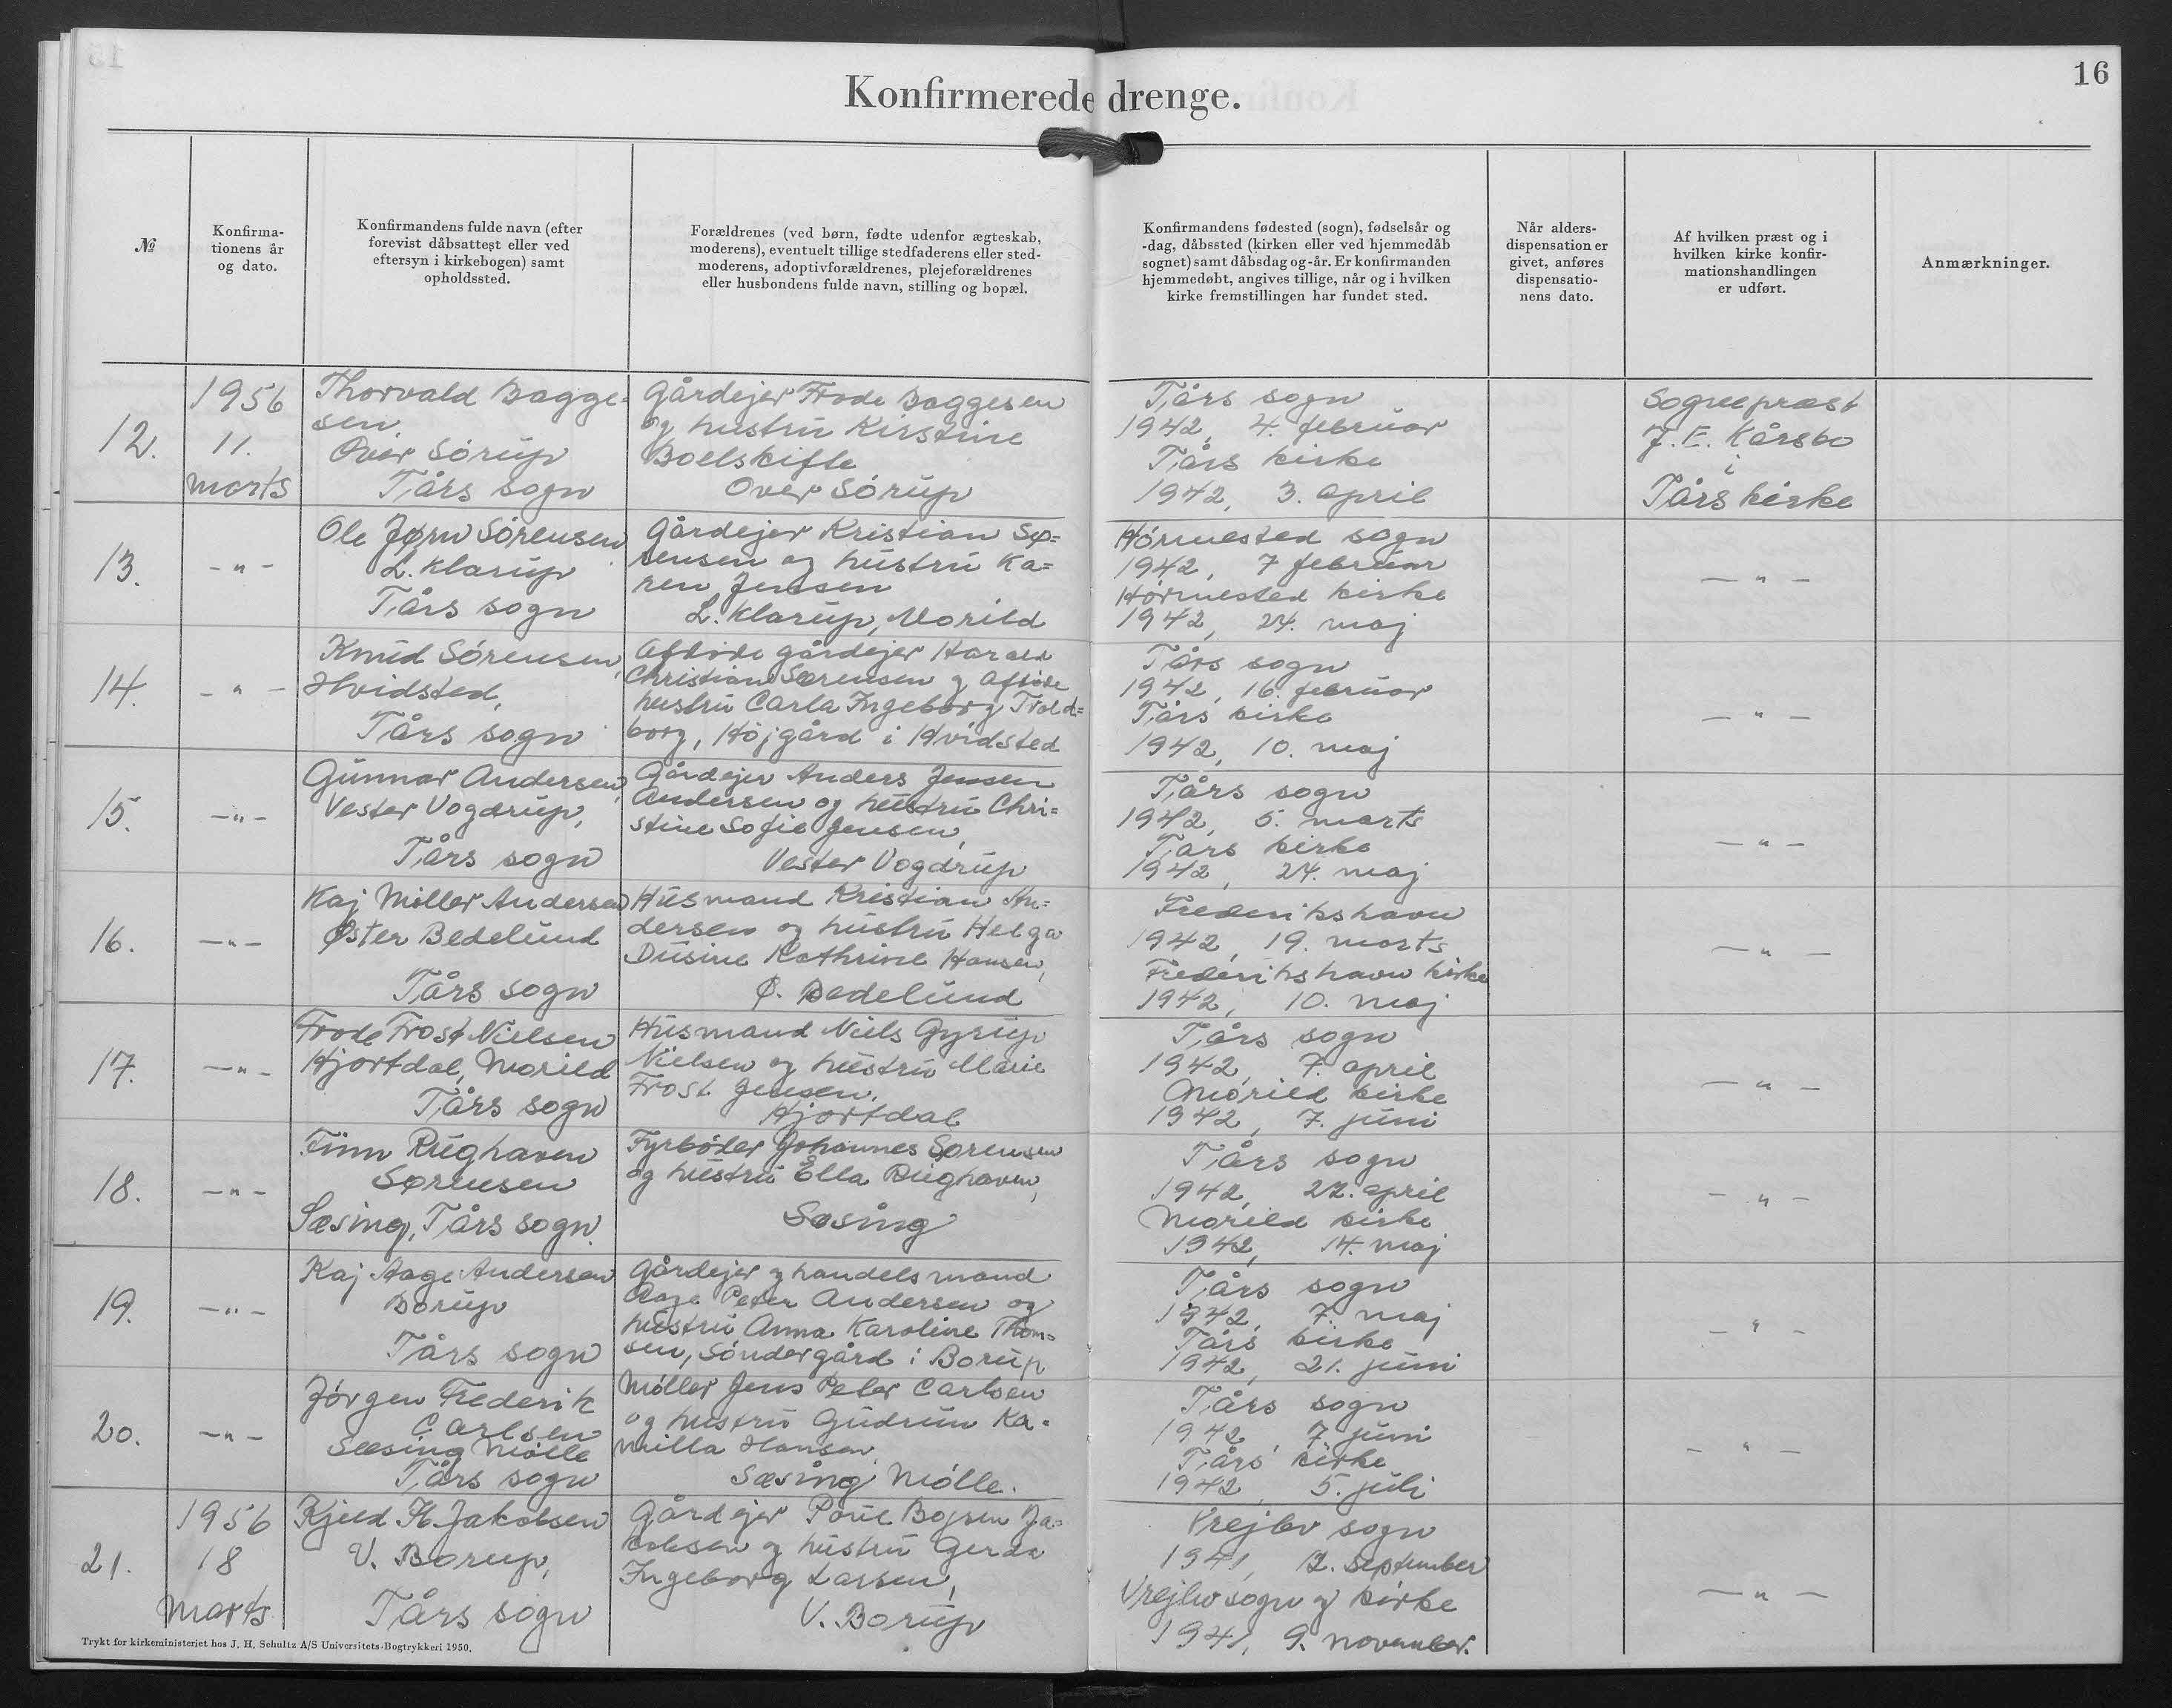 16
Konfirmerede drenge.
№
Konfirma-
tionens år
og dato.
Konfirmandens fulde navn (efter
forevist dåbsattest eller ved
eftersyn i kirkebogen) samt
opholdssted.
Forældrenes (ved børn, fødte udenfor ægteskab,
moderens), eventuelt tillige stedfaderens eller sted-
moderens, adoptivforældrenes, plejeforældrenes
eller husbondens fulde navn, stilling og bopæl.
Konfirmandens fødested (sogn), fødselsår og
-dag, dåbssted (kirken eller ved hjemmedåb
sognet) samt dåbsdag og -år. Er konfirmanden
hjemmedøbt, angives tillige, når og i hvilken
kirke fremstillingen har fundet sted.
Når alders-
dispensation er
givet, anføres
dispensatio-
nens dato.
Af hvilken præst og i
hvilken kirke konfir-
mationshandlingen
er udført.
Anmærkninger.
12.
1956
11.
marts
Thorvald Bagge-
sen,
Over Sörup
Tårs sogn
Gårdejer Frode Baggesen
og hustru Kirstine
Boelskifte
Over Sörup
Tårs sogn
1942, 4. februar
Tårs kirke
1942, 3. april
Sognepræst
J. E. Kårsbo
i
Tårs kirke
13.
- " -
Ole Jørn Sörensen,
L. Klarup
Tårs sogn
Gårdejer Kristian Sø=
rensen og hustru Ka=
ren Jensen
L. Klarup, Morild
Hörmested sogn
1942, 7 februar
Hörmested kirke
1942, 24. maj
- " -
14.
- " -
Knud Sörensen,
Hvidsted,
Tårs sogn
Afdöde gårdejer Harald
Christian Sørensen og afdöde
hustru Carla Ingeborg Trold=
borg, Höjgård i Hvidsted
Tårs sogn
1942, 16. februar
Tårs kirke
1942, 10. maj
- " -
15.
- " -
Gunnar Andersen,
Vester Vogdrup,
Tårs sogn
Gårdejer Anders Jensen
Andersen og hustru Chri=
stine Sofie Jensen,
Vester Vogdrup
Tårs sogn
1942, 5. marts
Tårs kirke
1942, 24. maj
- " -
16.
- " -
Kaj Möller Andersen
Øster Bedelund
Tårs sogn
Husmand Kristian An=
dersen og hustru Helga
Dusine Kathrine Hansen,
Ø. Bedelund
Frederikshavn
1942, 19. marts
Frederikshavn kirke
1942, 10. maj
- " -
17.
- " -
Frode Frost Nielsen
Hjortdal, Morild
Tårs sogn
Husmand Niels Gyrup
Nielsen og hustru Marie
Frost Jensen,
Hjortdal
Tårs sogn
1942, 7. april
Morild kirke
1942, 7. juni
- " -
18.
- " -
Finn Rughaven
Sørensen
Sæsing, Tårs sogn.
Fyrböder Johannes Sørensen
og hustru Ella Rughaven,
Sæsing
Tårs sogn
1942, 22. april
Morild kirke
1942, 14. maj
- " -
19.
- " -
Kaj Aage Andersen
Borup
Tårs sogn
Gårdejer og handelsmand
Aage Peter Andersen og
hustru Anna Karoline Thom=
sen, Söndergård i Borup
Tårs sogn
1942, 7. maj
Tårs kirke
1942, 21. juni
- " -
20.
- " -
Jörgen Frederik
Carlsen
Sæsing Mölle
Tårs sogn
Möller Jens Peter Carlsen
og hustru Gudrun Ka=
milla Hansen
Sæsing Mölle.
Tårs sogn
1942, 7. juni
Tårs kirke
1942, 5. juli
- " -
21.
1956
18
Marts
Kjeld H. Jakobsen
V. Borup,
Tårs sogn
Gårdejer Poul Bojsen Ja=
kobsen og hustru Gerda
Ingeborg Larsen,
V. Borup
Vrejlev sogn
1941, 12. september
Vrejlev sogn og kirke
1941, 9. november.
- " -
Trykt for kirkeministeriet hos J. H. Schultz A/S Universitets-Bogtrykkeri 1950.